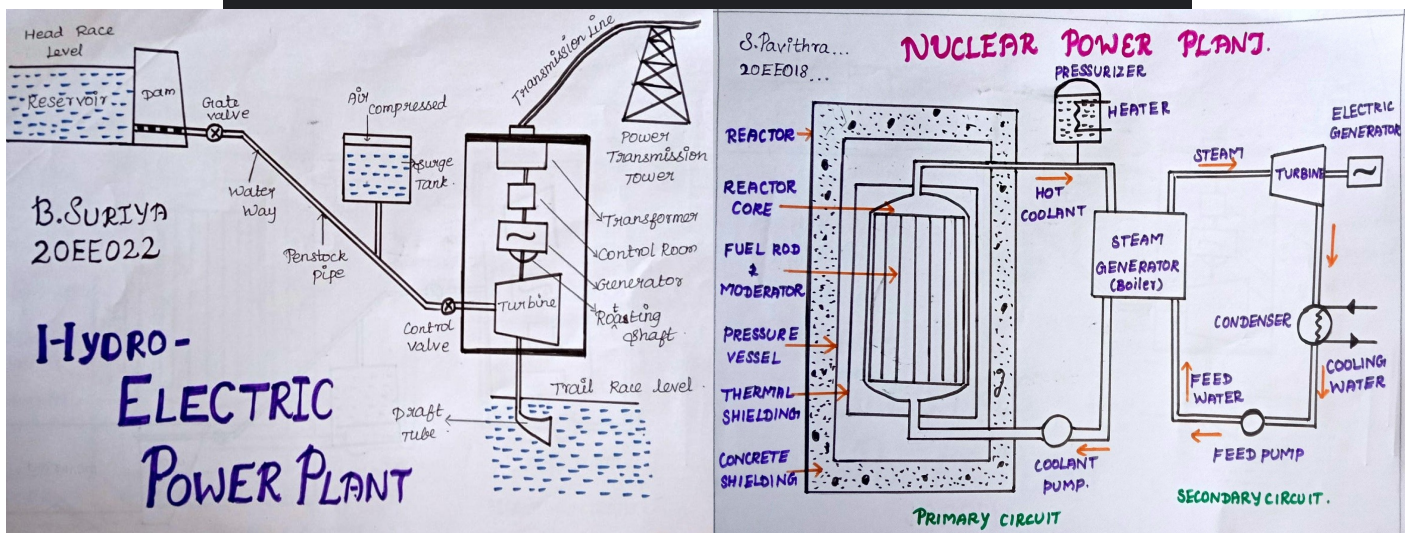 Head Race
Level
Reservoir
Dam
Gate
valve
Water
Way
Air
Compressed
Surge
Tank.
Penstock
pipe
Control
valve
Transmission Line
Power
Transmission
Tower
Transformer
Control Room
Generator
Roatsting
Shaft
Turbine
Trail Race level.
Draft
Tube
B.SURIYA
20EE022
HYDRO-
ELECTRIC
POWER PLANT
S.Pavithra...
20EE018...
NUCLEAR POWER PLANT.
PRESSURIZER
HEATER
REACTOR
REACTOR
CORE
FUEL ROD
&
MODERATOR
PRESSURE
VESSEL
THERMAL
SHIELDING
CONCRETE
SHIELDING
HOT
COOLANT
STEAM
GENERATOR
(Boiler)
COOLANT
PUMP.
PRIMARY CIRCUIT
STEAM
TURBINE
ELECTRIC
GENERATOR
CONDENSER
COOLING
WATER
FEED
WATER
FEED PUMP
SECONDARY CIRCUIT.